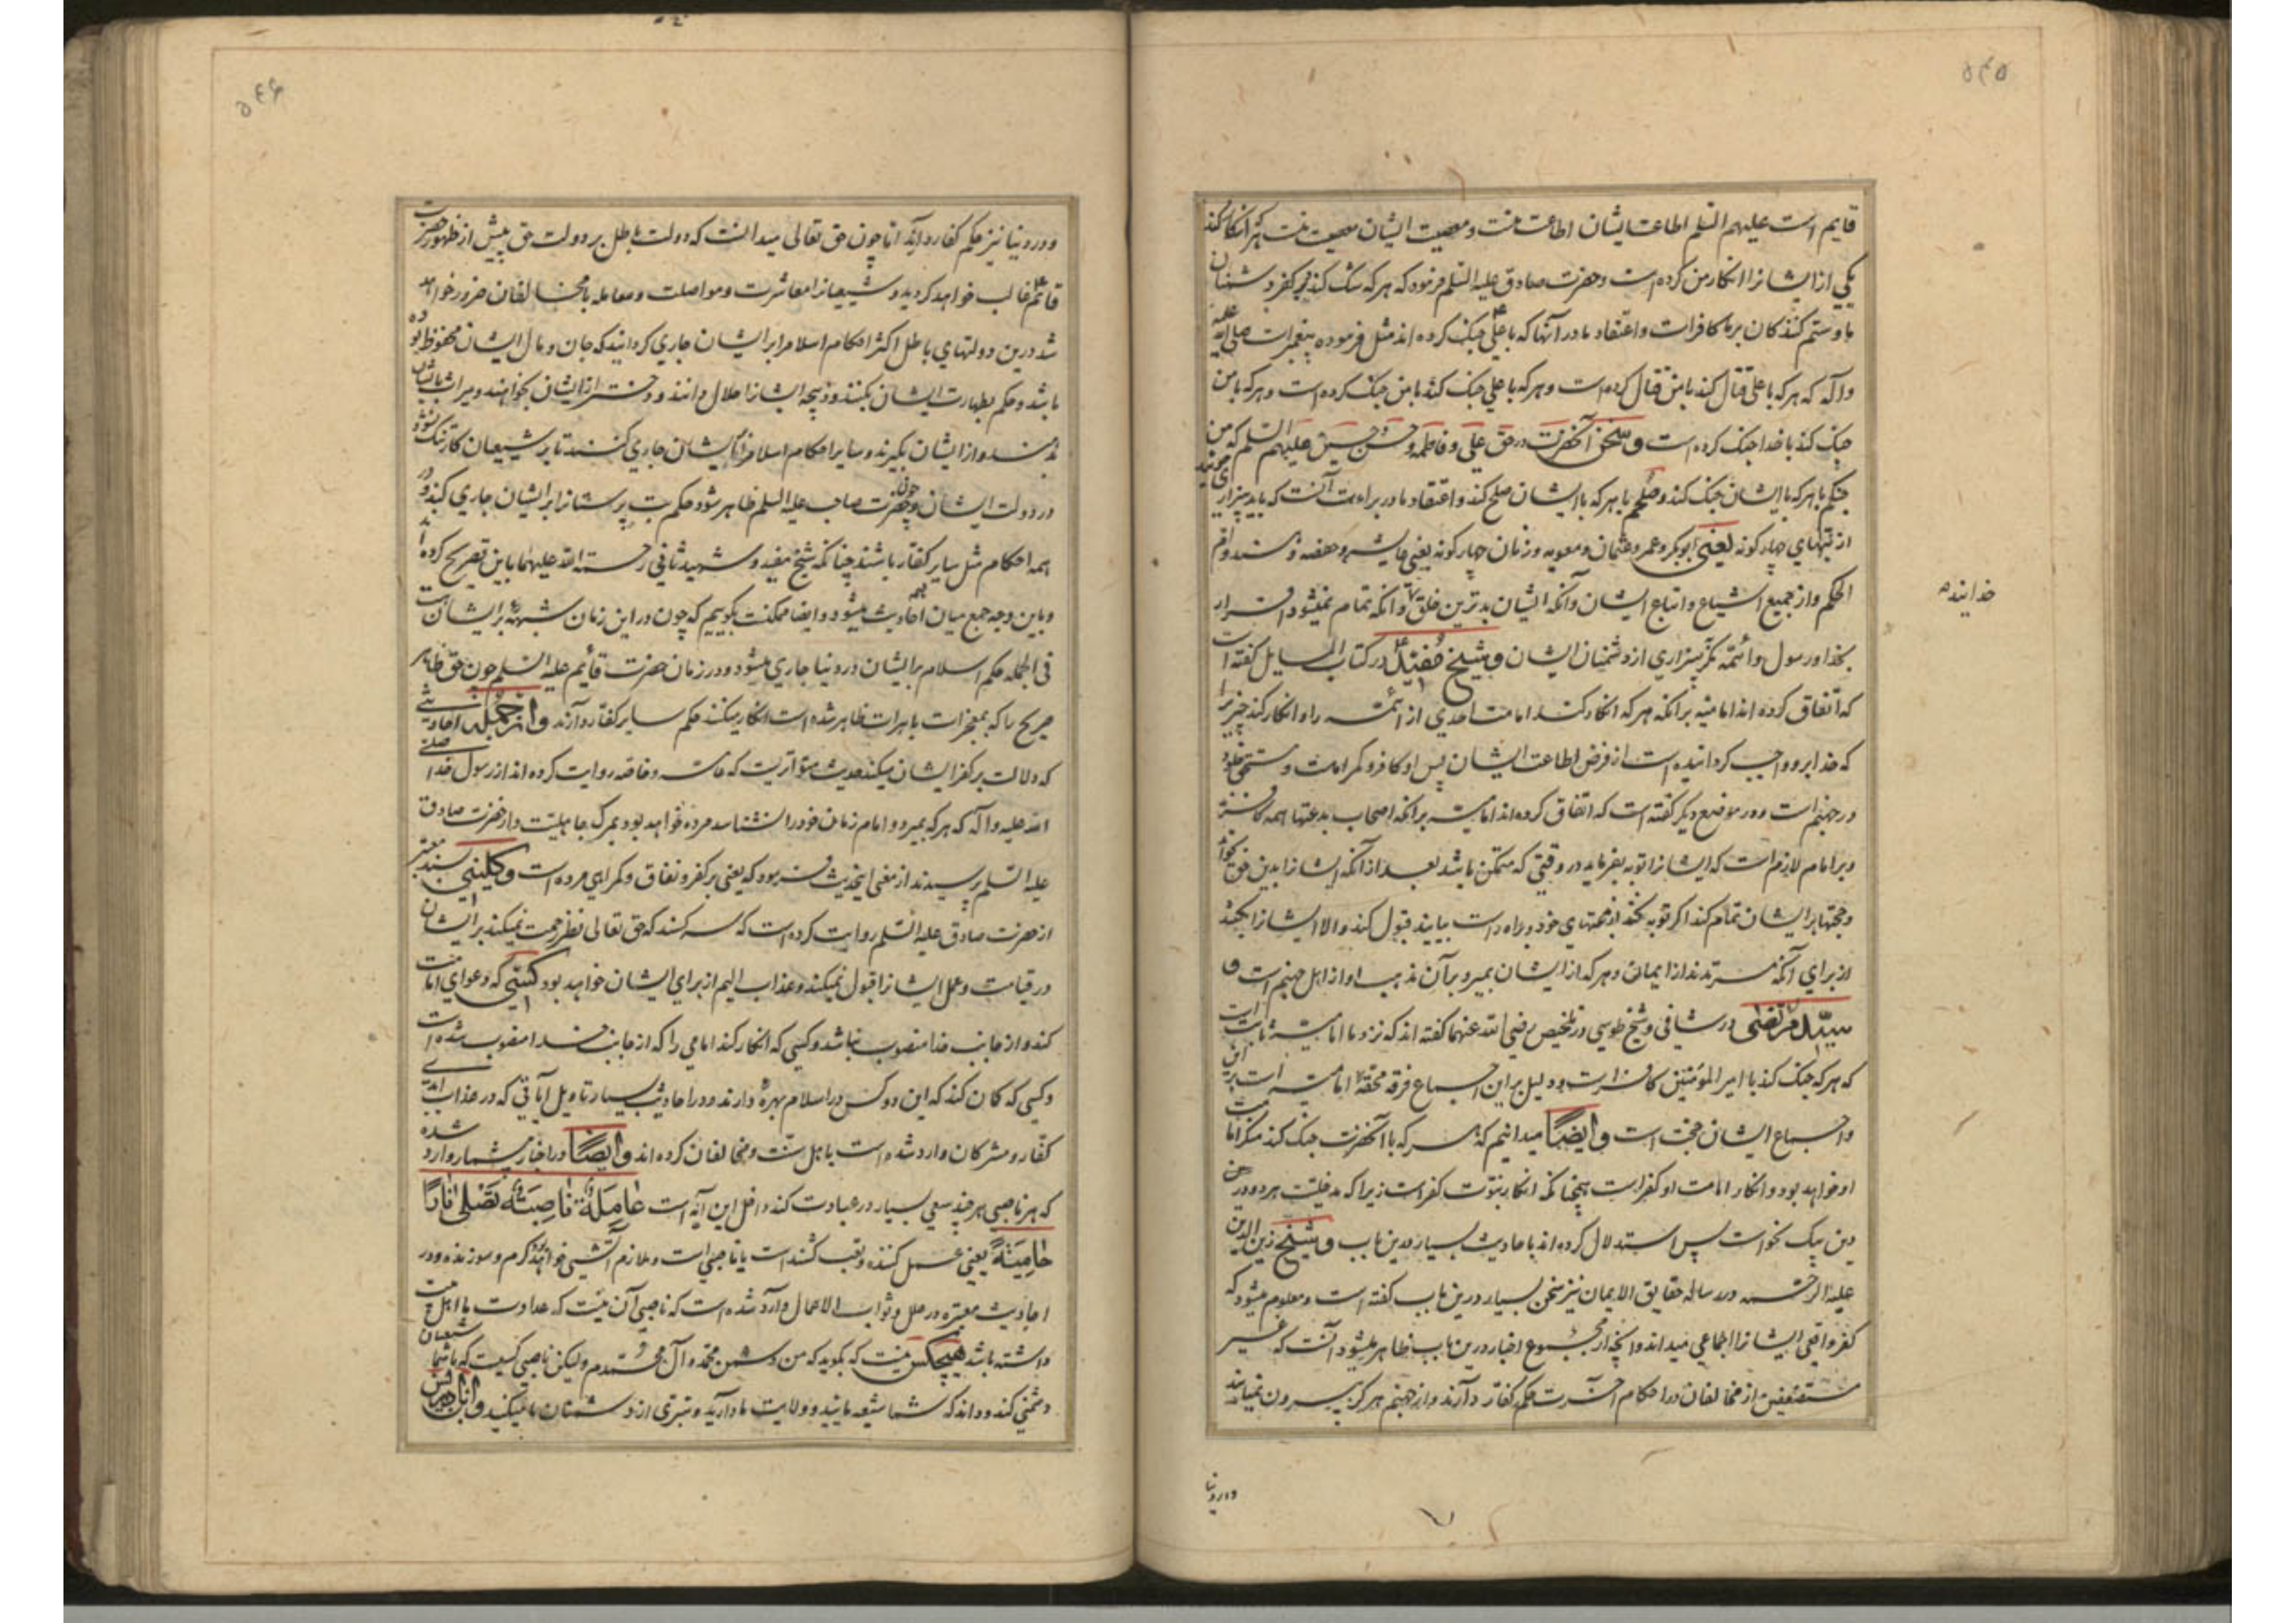 ۵۴۵
قایم است علیهم السلم اطاعت ایشان اطاعت منست و معصیت ایشان معصیت منست هر که انکار کند
یکی از ایشانرا انکار من کرده است و حضرت صادق علیه السلم فرمود که هر که شک کند در کفر دشمنان
ما و ستم کنندکان بر ما کافر است و اعتقاد ما در آنها که با علی جنک کرده اند مثل فرموده پیغمبر است صلی الله علیه
و آله که هر که با علی قتال کند با من قتال کرده است و هر که با علی جنک کند با من جنک کرده است و هر که با من
جنک کند با خدا جنک کرده است و سخن آنحضرت در حق علی و فاطمه و حسن و حسین علیهم السلم که من
جنکم با هر که با ایشان جنک کند و صلحم با هر که با ایشان صلح کند و اعتقاد ما در براءت آنست که باید بیزاری جویند
از بتهای چهار کونه یعنی ابوبکر و عمر و عثمان و معویه و زنان چهار کونه یعنی عایشه و حفصه و هند و ام
الحکم و از جمیع اشیاع و اتباع ایشان و آنکه ایشان بدترین خلق و آنکه تمام نمیشود اقرار
خدایند
بخدا و رسول و ائمه مکر به بیزاری از دشمنان ایشان و شیخ مفید در کتاب المسایل کفته است
که اتفاق کرده اند امامیه بر آنکه هر که انکار کند امامت احدی از ائمه را و انکار کند چیزیرا
که خدا بر او واجب کردانیده است از فرض اطاعت ایشان پس او کافر و کمراه است و مستحق خلود
در جهنم است و در موضع دیکر کفته است که اتفاق کرده اند امامیه بر آنکه اصحاب بدعتها همه کافرند
و بر امام لازم است که ایشانرا توبه بفرماید در وقتی که متمکن باشد بعد از آنکه ایشانرا بدین حق بخواند
و حجتها بر ایشان تمام کند اکر توبه کنند از بدعتهای خود و براه راست بیایند قبول کند و الا ایشانرا بکشد
از برای آنکه مرتدند از ایمان و هر که از ایشان بمیرد بر آن مذهب او از اهل جهنم است و
سید مرتضی در شافی و شیخ طوسی در تلخیص رضی الله عنهما کفته اند که نزد ما امامیه ثابت است
که هر که جنک کند با امیر المؤمنین کافر است و دلیل بر این اجماع فرقه محقه امامیه است بر این
و اجماع ایشان حجت است و ایضا میدانیم که هر که با آنحضرت جنک کند منکر امامت
او خواهد بود و انکار امامت او کفر است همچنانکه انکار نبوت کفر است زیرا که مدخلیت هر دو در
دین بیک نحو است پس استدلال کرده اند باحادیث بسیار درین باب و شیخ زین الدین
علیه الرحمه در رساله حقایق الایمان نیز سخن بسیار درین باب کفته است و معلوم میشود که
کفر واقعی ایشانرا اجماعی میداند و آنچه از مجموع اخبار درین باب ظاهر میشود آنست که غیر
مستضعفین از مخالفان در احکام آخرت حکم کفار دارند و از جهنم هرکز بیرون نمیآیند
و در دنیا
۵۴۶
و در دنیا نیز حکم کفار دارند اما چون حق تعالی میدانست که دولت باطل بر دولت حق پیش از ظهور حضرت
قائم غالب خواهد کردید و شیعیانرا معاشرت و مواصلت و معامله با مخالفان ضرور خواهد
شد درین دولتهای باطل اکثر احکام اسلام را بر ایشان جاری کردانید که جان و مال ایشان محفوظ بوده
باشد و حکم بطهارت ایشان بکنند و ذبیحه ایشانرا حلال دانند و دختر از ایشان بخواهند و میراث بایشان
بدهند و از ایشان بکیرند و سایر احکام اسلام را بایشان جاری کنند تا بر شیعیان کار تنک نشود
در دولت ایشان و چون حضرت صاحب علیه السلم ظاهر شود حکم بت پرستانرا بر ایشان جاری کند و در
همه احکام مثل سایر کفار باشند چنانکه شیخ مفید و شهید ثانی رحمة الله علیهما باین تصریح کرده اند
و باین وجه جمع میان احادیث میشود و ایضا ممکنست بکوییم که چون در این زمان شبهۀ بر ایشان هست
فی الجمله حکم اسلام بر ایشان در دنیا جاری میشود و در زمان حضرت قائم علیه السلم چون حق ظاهر
صریح را که بمعجزات باهرات ظاهر شده است انکار میکنند حکم سایر کفار دارند و از جمله احادیثی
که دلالت بر کفر ایشان میکند حدیث متواتریست که عامه و خاصه روایت کرده اند از رسول خدا صلی
الله علیه و آله که هر که بمیرد و امام زمان خود را نشناسد مرده خواهد بود بمرک جاهلیت و از حضرت صادق
علیه السلم پرسیدند از معنی اینحدیث فرمود که یعنی بر کفر و نفاق و کمراهی مرده است و کلینی بسند معتبر
از حضرت صادق علیه السلم روایت کرده است که سه کسند که حق تعالی نظر رحمت نمیکند بر ایشان
در قیامت و عمل ایشانرا قبول نمیکند و عذاب الیم از برای ایشان خواهد بود کسی که دعوای امامت
کند و از جانب خدا منصوب نباشد و کسی که انکار کند امامی را که از جانب خدا منصوب شده است
و کسی که کمان کند که این دو کس در اسلام بهرۀ دارند و در احادیث بسیار تاویل آیاتی که در عذاب ابدی
کفار و مشرکان وارد شده است باهل سنت و مخالفان کرده اند و ایضا در اخبار بیشمار وارد شده
که هر ناصبی هر چند سعی بسیار در عبادت کند داخل این آیه است عاملة ناصبة تصلی نارا
حامیة یعنی عمل کننده و تعب کشنده است یا ناصبی است و ملازم آتشی خواهد بود کرم و سوزنده و در
احادیث معتبره در علل و ثواب الاعمال وارد شده است که ناصبی آن نیست که عداوت با اهل بیت
داشته باشد هیچکس نیست که بکوید که من دشمن محمد و آل محمدم ولیکن ناصبی کسیست که با شما شیعیان
دشمنی کند و داند که شما شیعه مایید و ولایت ما دارید و تبری از دشمنان ما میکنید